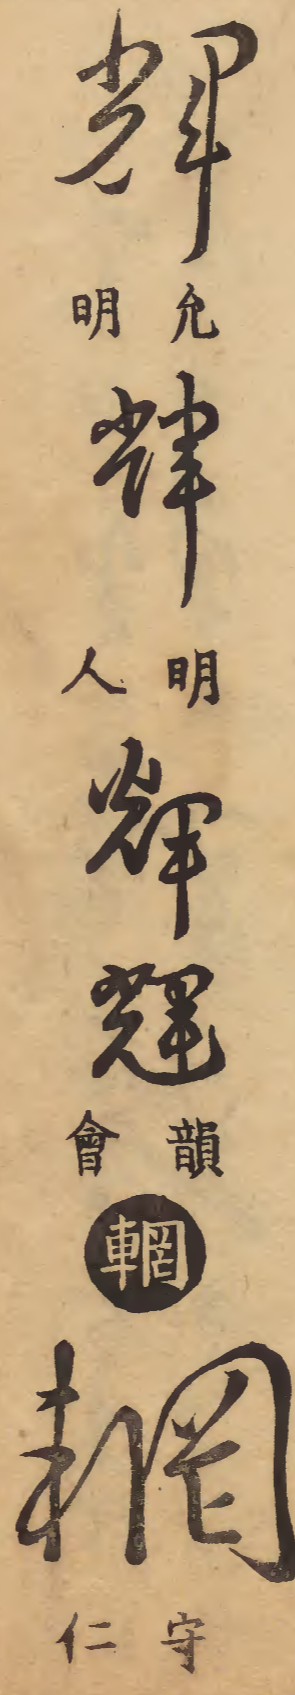 輝
允明
輝
明人
輝
輝
韻會
輞
輞
守仁